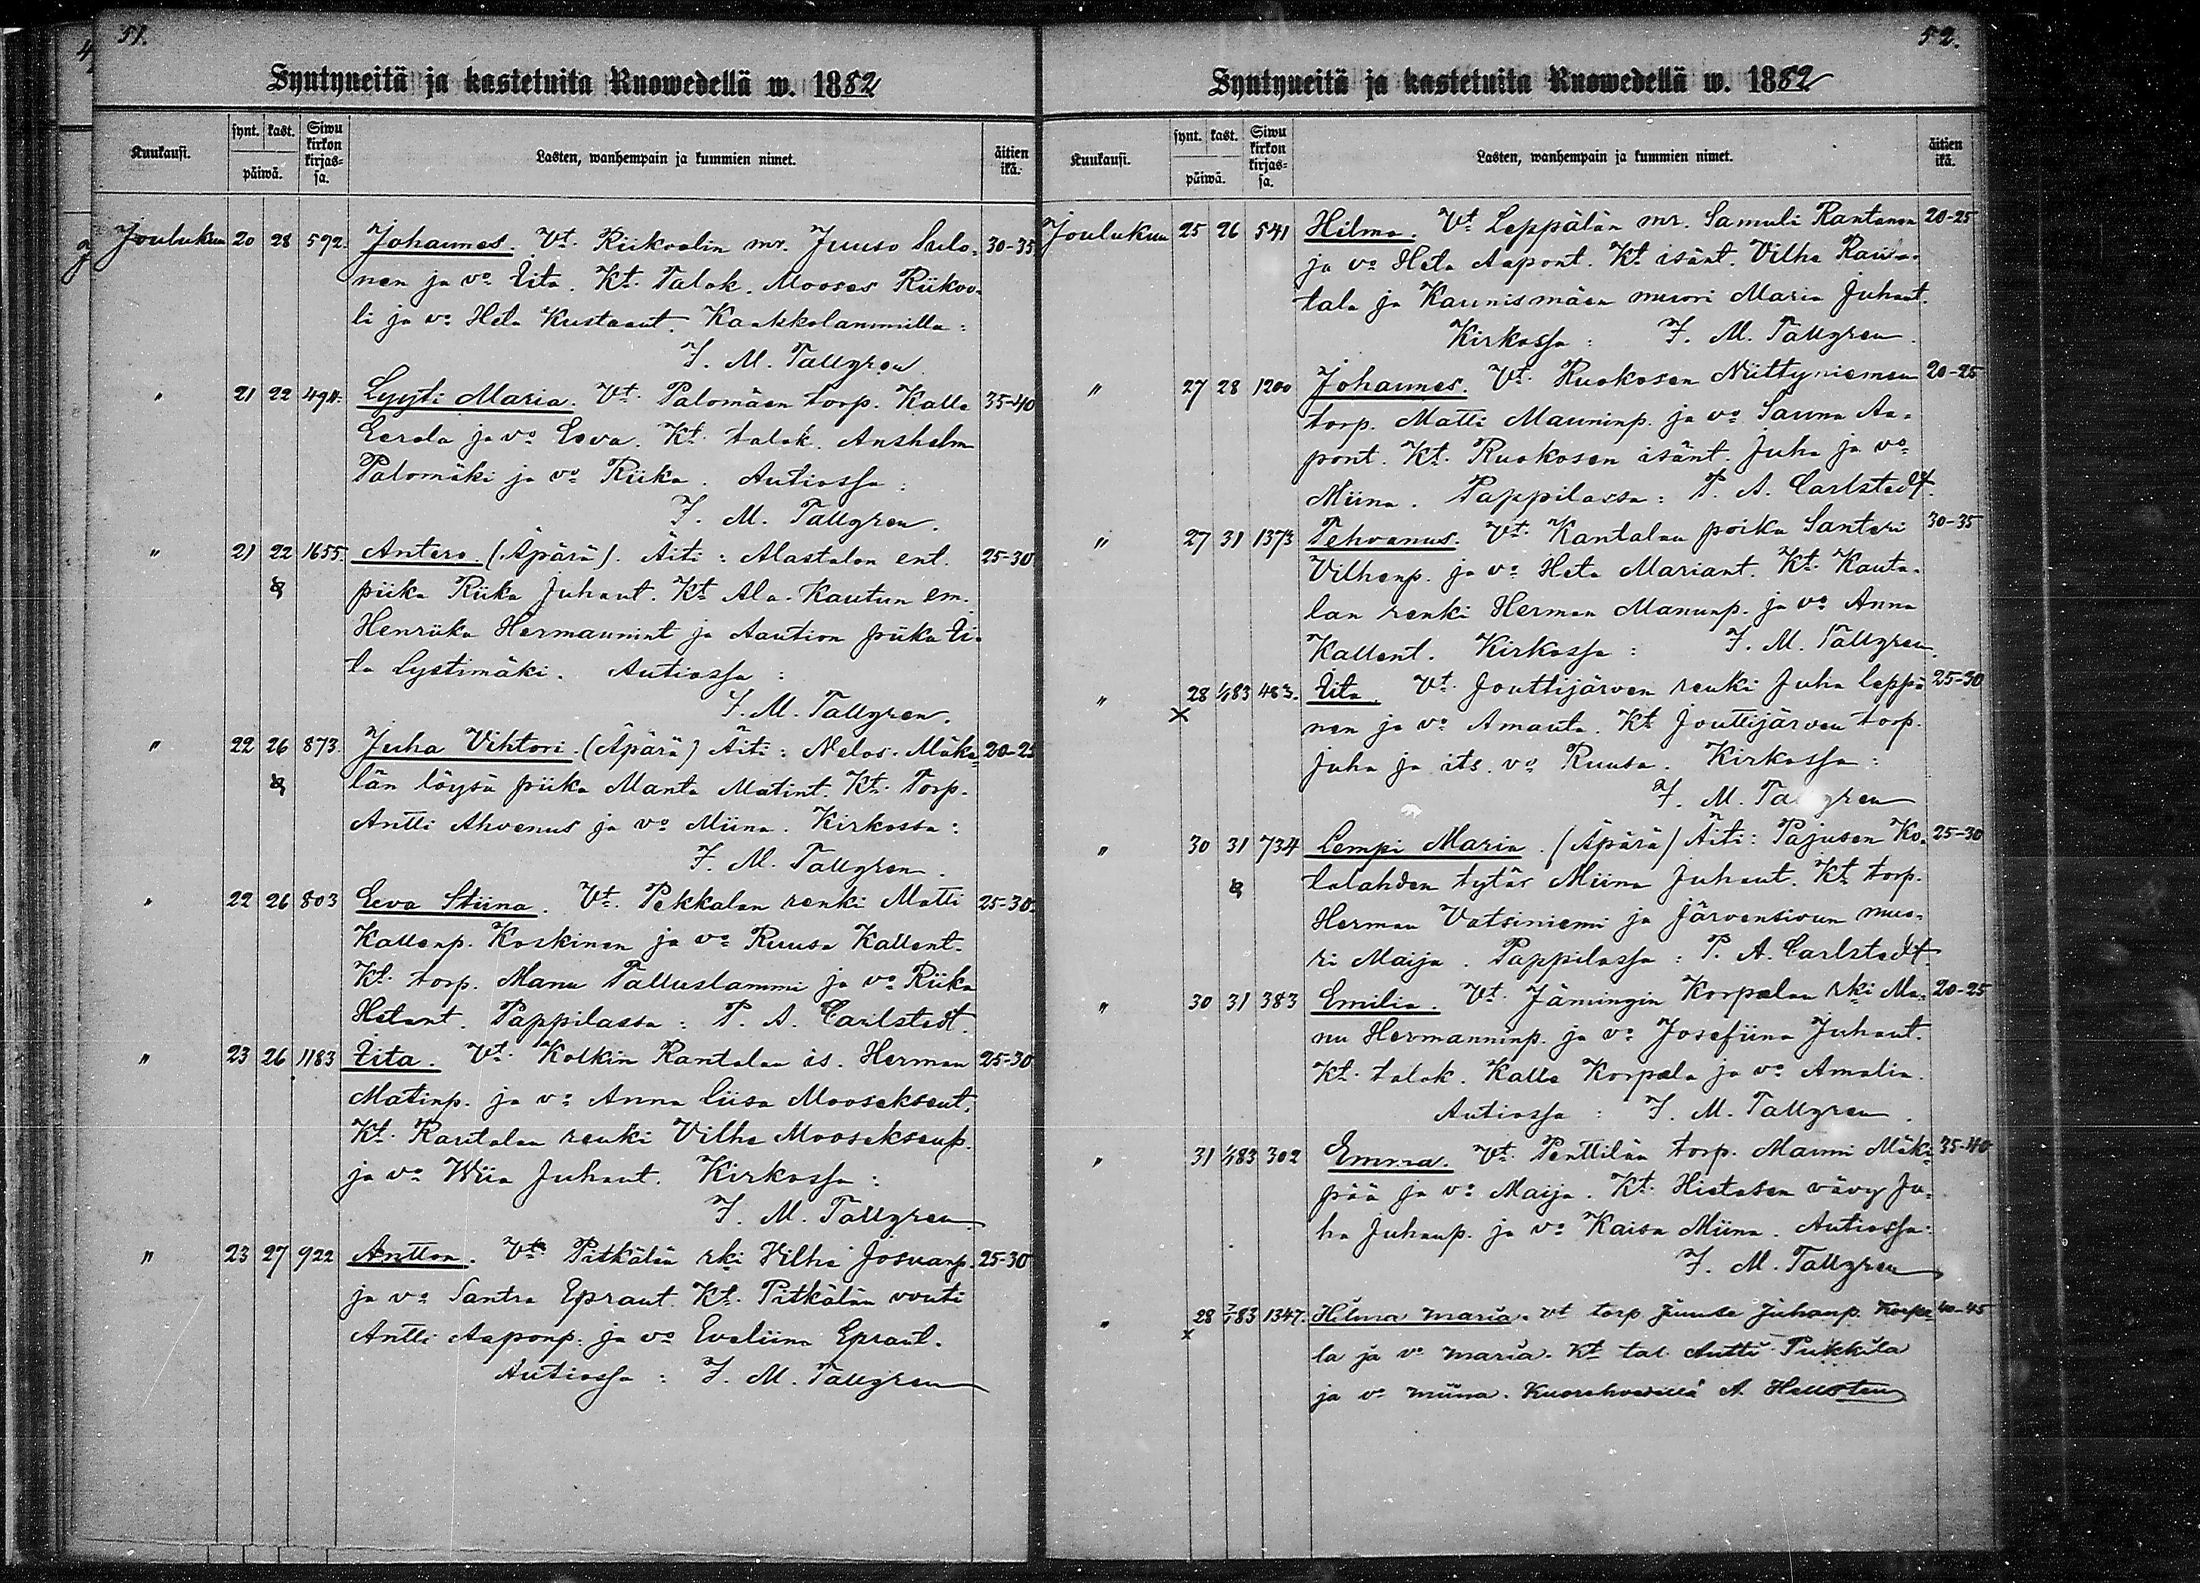 51.
Syntyneitä ja kastetuita Ruowedellä w. 1882
Kuukausi. synt. kast. päiwä. Siwu kirkon kirjassa. Lasten, wanhempain ja kummien nimet. äitien ikä.
Joulukuu 20 28 592. Johannes. Vt. Riikoolin mr. Juuso Sulo- 30-35
nen ja vo Eita. Kt. Talok. Mooses Riikoo-
li ja vo Heta Kustaant. Kaakkolammilla:
F. M. Tallgren
" 21 22 494. Lyyti Maria. Vt. Palomäen torp. Kalle 35-40
Eerola ja vo Eeva. Kt. talok. Anshelm
Palomäki ja vo Riika. Autiossa:
F. M. Tallgren.
" 21 22 1655. Antero (Äpärä). Äiti: Alastalon ent. 25-30
piika Riika Juhant. Kt. Ala-Kautun em.
Henriika Hermannint ja Aaution piika Ei-
ta Lystimäki. Autiossa:
F. M. Tallgren.
" 22 26 873. Juha Vihtori. (Äpärä) Äiti: Nelos-Mäke- 20-25
län löysä piika Manta Matint. Kt. Torp.
Antti Ahvenus ja vo Miina. Kirkossa:
F. M. Tallgren.
" 22 26 803 Eeva Stiina. Vt. Pekkalan renki Matti 25-30.
Kallenp. Koskinen ja vo Ruusa Kallent.
Kt. torp. Manu Talluslammi ja vo Riika
Hetant. Pappilassa: P. A. Carlstedt.
" 23 26 1183 Eita. Vt. Kolkin Rantalan is. Herman 25-30
Matinp. ja vo Anna Liisa Mooseksent.
Kt. Rantalan renki Vilhe Mooseksenp.
ja vo Wiia Juhant. Kirkossa:
F. M. Tallgren
" 23 27 922 Antton. Vt. Pitkälän rki Vilhe Josuanp. 25-30
ja vo Santra Eprant. Kt. Pitkälän vouti
Antti Aaponp. ja vo Eveliina Eprant.
Autiossa: F. M. Tallgren
52.
Syntyneitä ja kastetuita Ruowedellä w. 1882
Kuukausi. synt. kast. päiwä. Siwu kirkon kirjassa. Lasten, wanhempain ja kummien nimet. äitien ikä.
Joulukuu 25 26 541 Hilma. Vt. Leppälän mr. Samuli Rantanen 20-25
ja vo Heta Aapont. Kt. isänt. Vilhe Rauta-
tala ja Kaunismäen muori Maria Juhant.
Kirkossa: F. M. Tallgren.
" 27 28 1200 Johannes. Vt. Ruokosen Niittyniemen 20-25
torp. Matti Mauninp. ja vo Sanna Aa-
pont. Kt. Ruokosen isänt. Juha ja vo
Miina. Pappilassa: P. A. Carlstedt.
" 27 31 1373 Tehvanus. Vt. Kantalan poika Santeri 30-35
Vilhenp. ja vo Heta Mariant. Kt. Kanta-
lan renki Herman Manunp. ja vo Anna
Kallent. Kirkossa: F. M. Tallgren.
" x 28 1/1 83 483. Eita. Vt. Jouttijärven renki Juha Leppä- 25-30
nen ja vo Amanta. Kt. Jouttijärven torp.
Juha ja its. vo Ruusa. Kirkossa:
F. M. Tallgren
" 30 31 734 Lempi Maria. (Äpärä) Äiti: Pajusen Ko- 25-30
talahden tytär Miina Juhant. Kt. torp.
Herman Vatsiniemi ja Järvensivun muo-
ri Maija. Pappilassa: P. A. Carlstedt.
" 30 31 383 Emilia. Vt. Jämingin Korpelan rki Ma- 20-25
nu Hermanninp. ja vo Josefiina Juhant.
Kt. talok. Kalle Korpela ja vo Amalia.
Autiossa: F. M. Tallgren.
" 31 1/1 83 302 Emma. Vt. Penttilän torp. Manni Mäki- 35-40
pää ja vo Maija. Kt. Hietasen vävy Ju-
ha Juhanp. ja vo Kaisa Miina. Autiossa:
F. M. Tallgren
" x 28 83 1347. Hilma Maria. vt torp Juuse Juhanp. Korpe- 40-45
la ja vo Maria. Kt tal. Antti Pukkila
ja vo Miina. Kuorehvedellä A. Hellsten